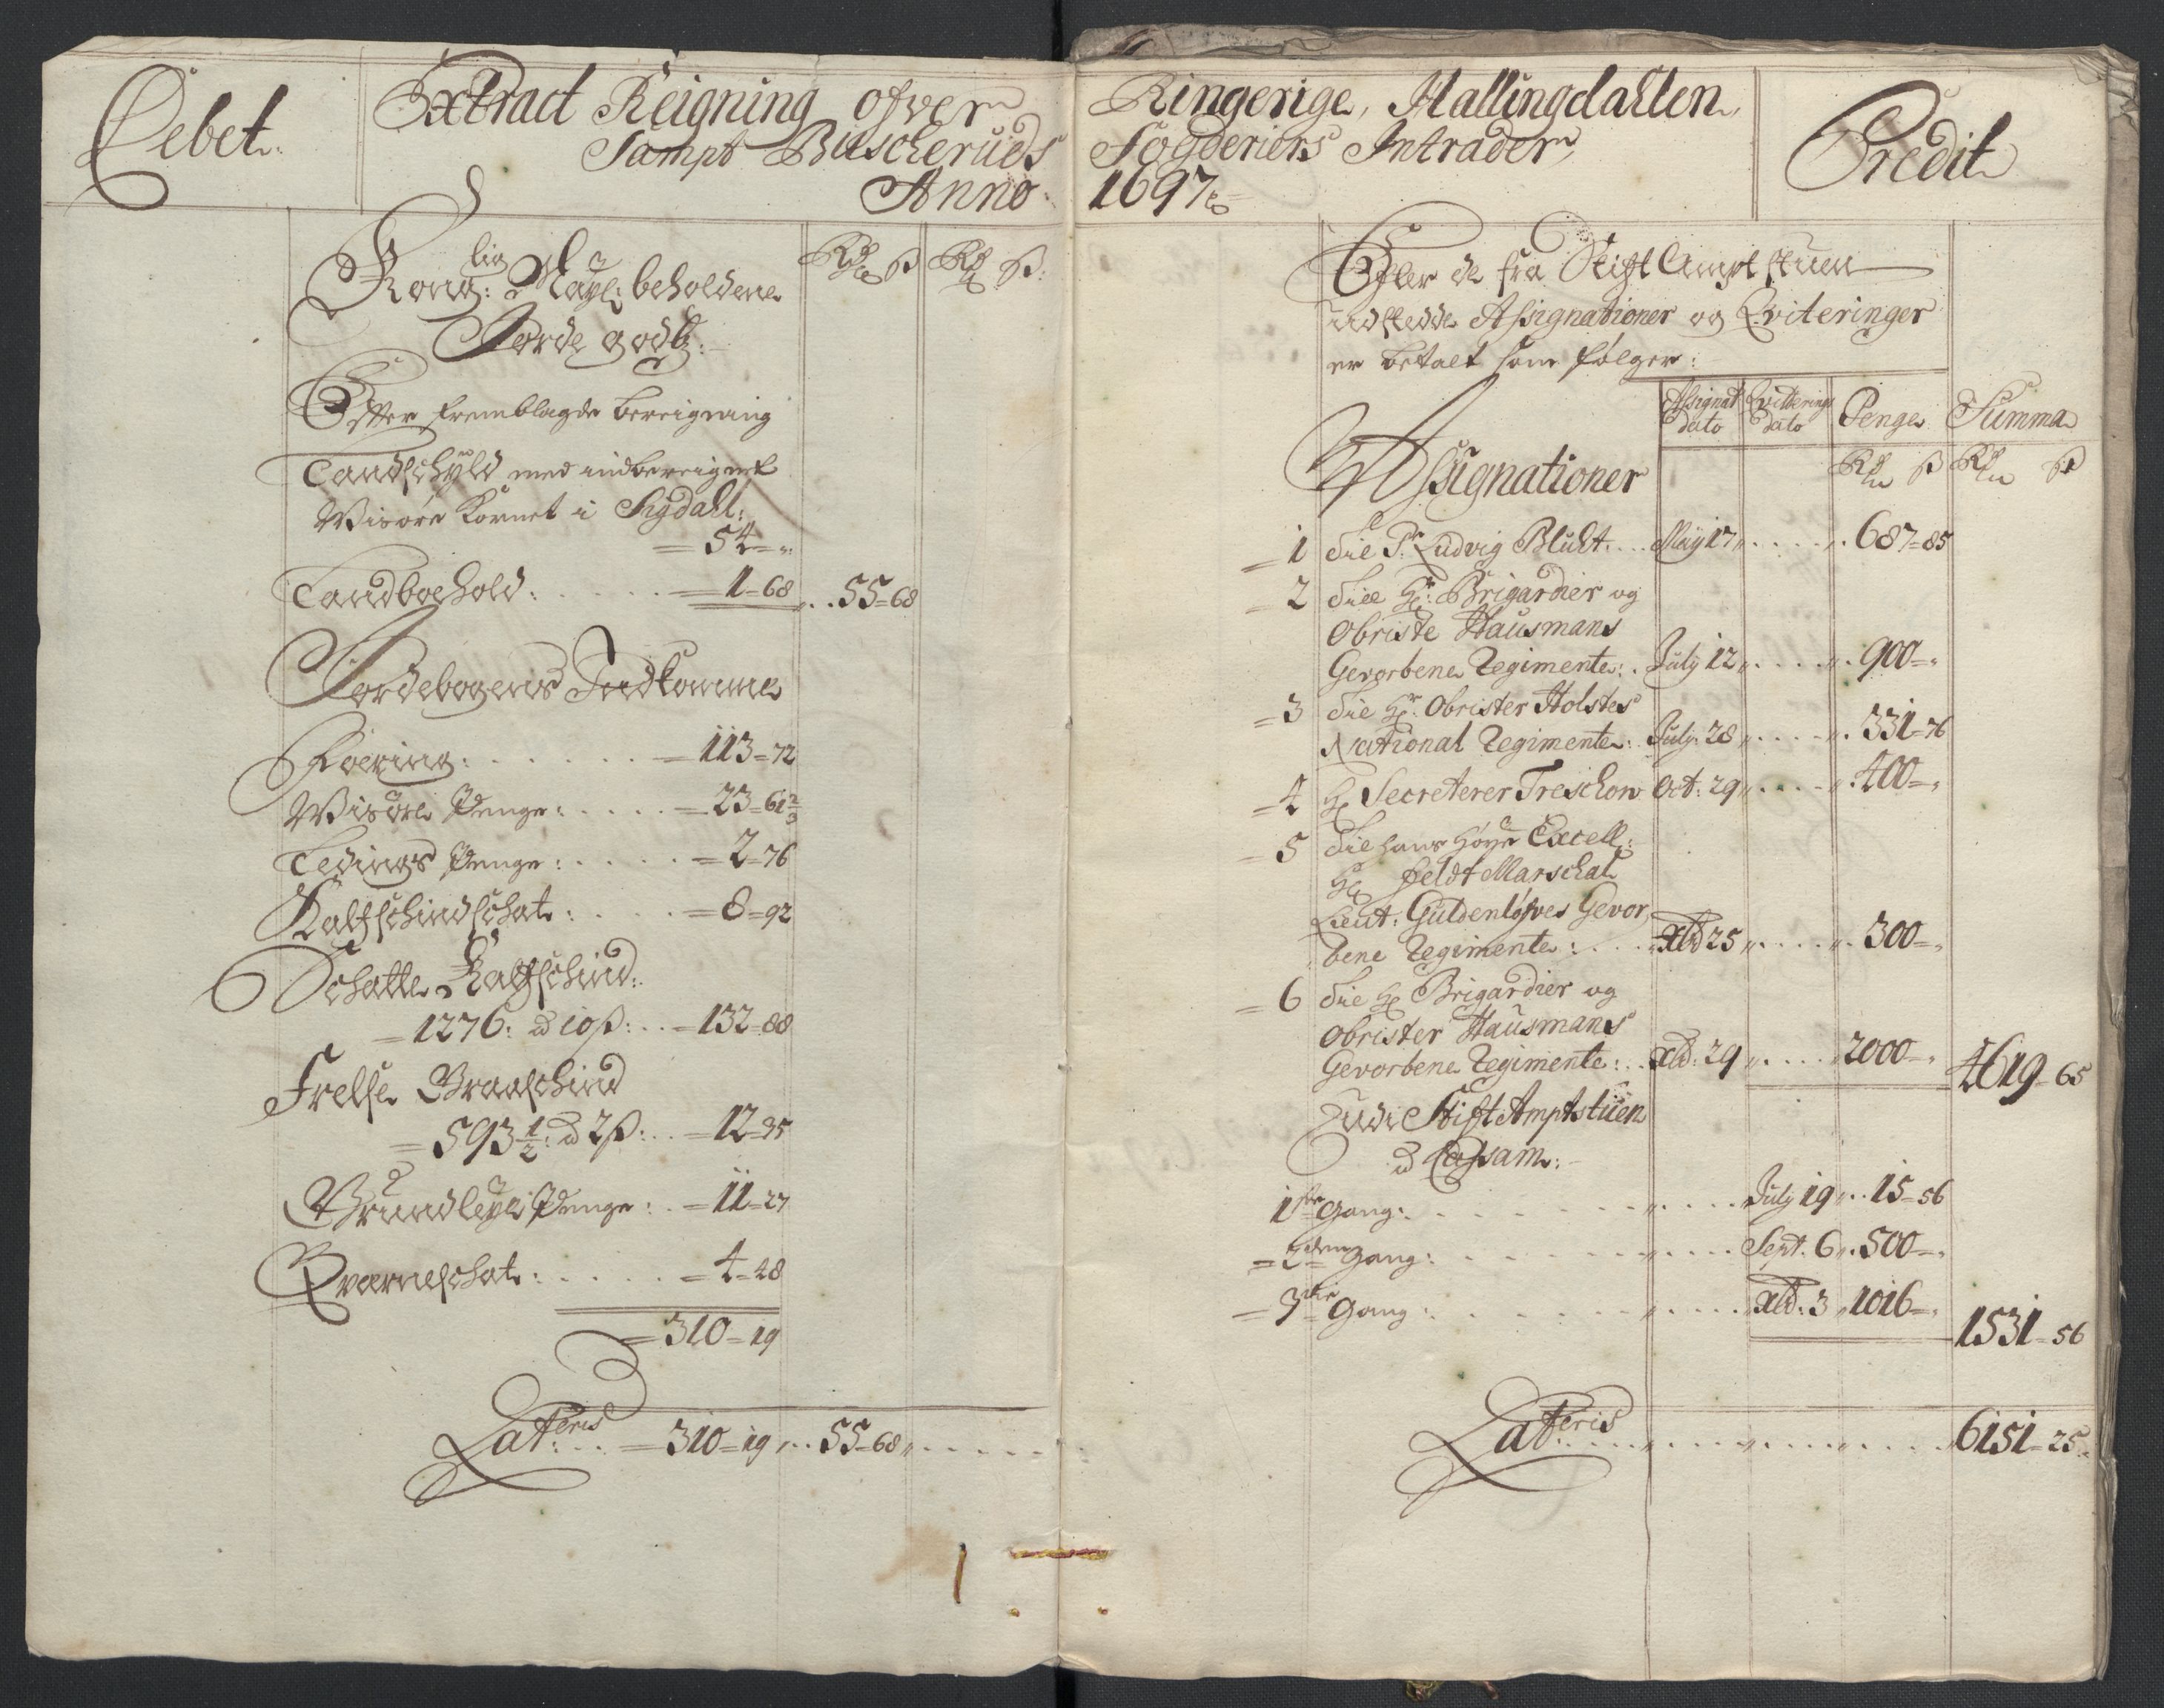 Debet.
Extract Reigning ofver Ringerige, Hallingdahlen,
Sampt Buscheruds Fogderiers Intrader,
Anno 1697
Credit
Rdr ß Rdr ß
Kong: Mayl: beholdene
Jorde godtz:
Efter fremblagde bereigning
Landschyld med indbereignet
Wisöre Kornet i Sigdahl:
= 54 = "
Landboehold: = 1 = 68 55 = 68
Jordebogens Indkomme
Foering: = 113 = 72
Wisöre Penge: = 23 = 61 2/3
Ledings Penge: = 2 = 76
Kalfschindschat: = 8 = 92
Schatte Kalfschind:
= 1276: a 10 ß: = 132 = 88
Frelse Graaschind
= 593 1/2: a 2 ß: = 12 = 35
Grundleye Penge: = 11 = 27
Qværneschat: = 4 = 48
= 310 = 19
Lateris = 310 = 19 55 = 68
Efter de fra Stift Ampt stuen
udstedde Assignationer og Qviteringer
er betalt som følger:
Assignat dato Qvitterings dato Penge Summa
Assignationer Rdr ß Rdr ß
= 1 til Sr Ludvig Blucht. Maÿ 17 687 = 85
= 2 till Hr: Brigardier og
Obriste Hausmans
Gevorbene Regimente: July 12 900 = "
= 3 til Hr: Obrister Holstes
National Regimente: July 28 331 = 76
= 4 Hr Secreterer Treschow Oct: 29 400 = "
= 5 til hans höye Excell:
Hr feldt Marschal
Lieut: Guldenløfves Gevor,
bene Regimente: Xbr 25 300 = "
= 6 til Hr Brigardier og
Obrister Hausmans
Gevorbene Regimente: Xbr: 29 2000 = " 4619 = 65
Udi Stift Amptstuen
a Cassam:
1ste Gang: July 19 15 = 56
= 2den Gang: Sept. 6 500 = "
= 3die Gang: Xbr: 3 1016 = " 1531 = 56
Lateris 6151 = 25